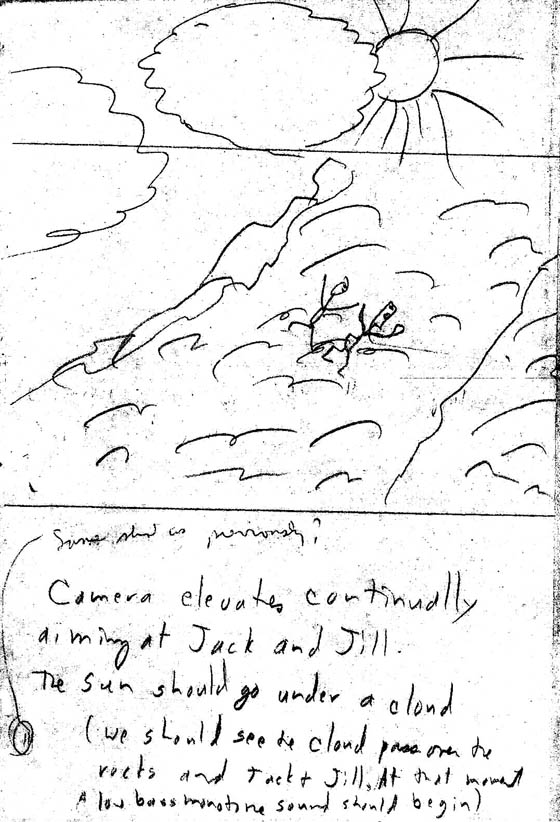 Same shot as previously?
Camera elevates continually
aiming at Jack and Jill.
The Sun should go under a cloud
(we should see the cloud pass over the
rocks and Jack + Jill, At that moment
A low bass monotone sound should begin)